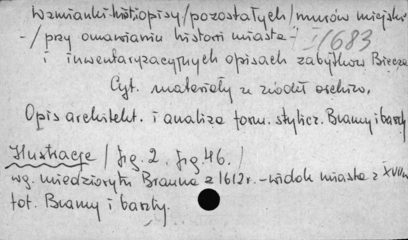 Wzmianki histiopisy/pozostałych/murów miejski
-/przy omawianiu historii miasta-/ I/1683
i inwentaryzacyjnych opisach zabytków Biecza
Cyt. materiały z źródeł archiw.
Opis architekt. i analiza form. stylicz. Bramy i baszty
Ilustracje / fig. 2. fig. 46. /
wg. miedziorytu Brauna z 1612 r. - widok miasta z XVII w
fot. Bramy i baszty.